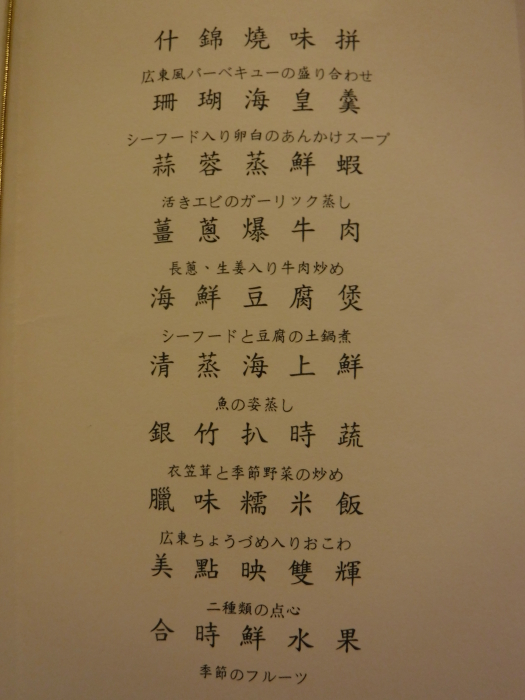 什錦燒味拼
広東風バーベキューの盛り合わせ
珊瑚海皇羹
シーフード入り卵白のあんかけスープ
蒜蓉蒸鮮蝦
活きエビのガーリック蒸し
薑蔥爆牛肉
長蔥、生姜入り牛肉炒め
海鮮豆腐煲
シーフードと豆腐の土鍋煮
清蒸海上鮮
魚の姿蒸し
銀竹扒時蔬
衣笠茸と季節野菜の炒め
臘味糯米飯
広東ちょうづめ入りおこわ
美點映雙輝
二種類の点心
合時鮮水果
季節のフルーツ